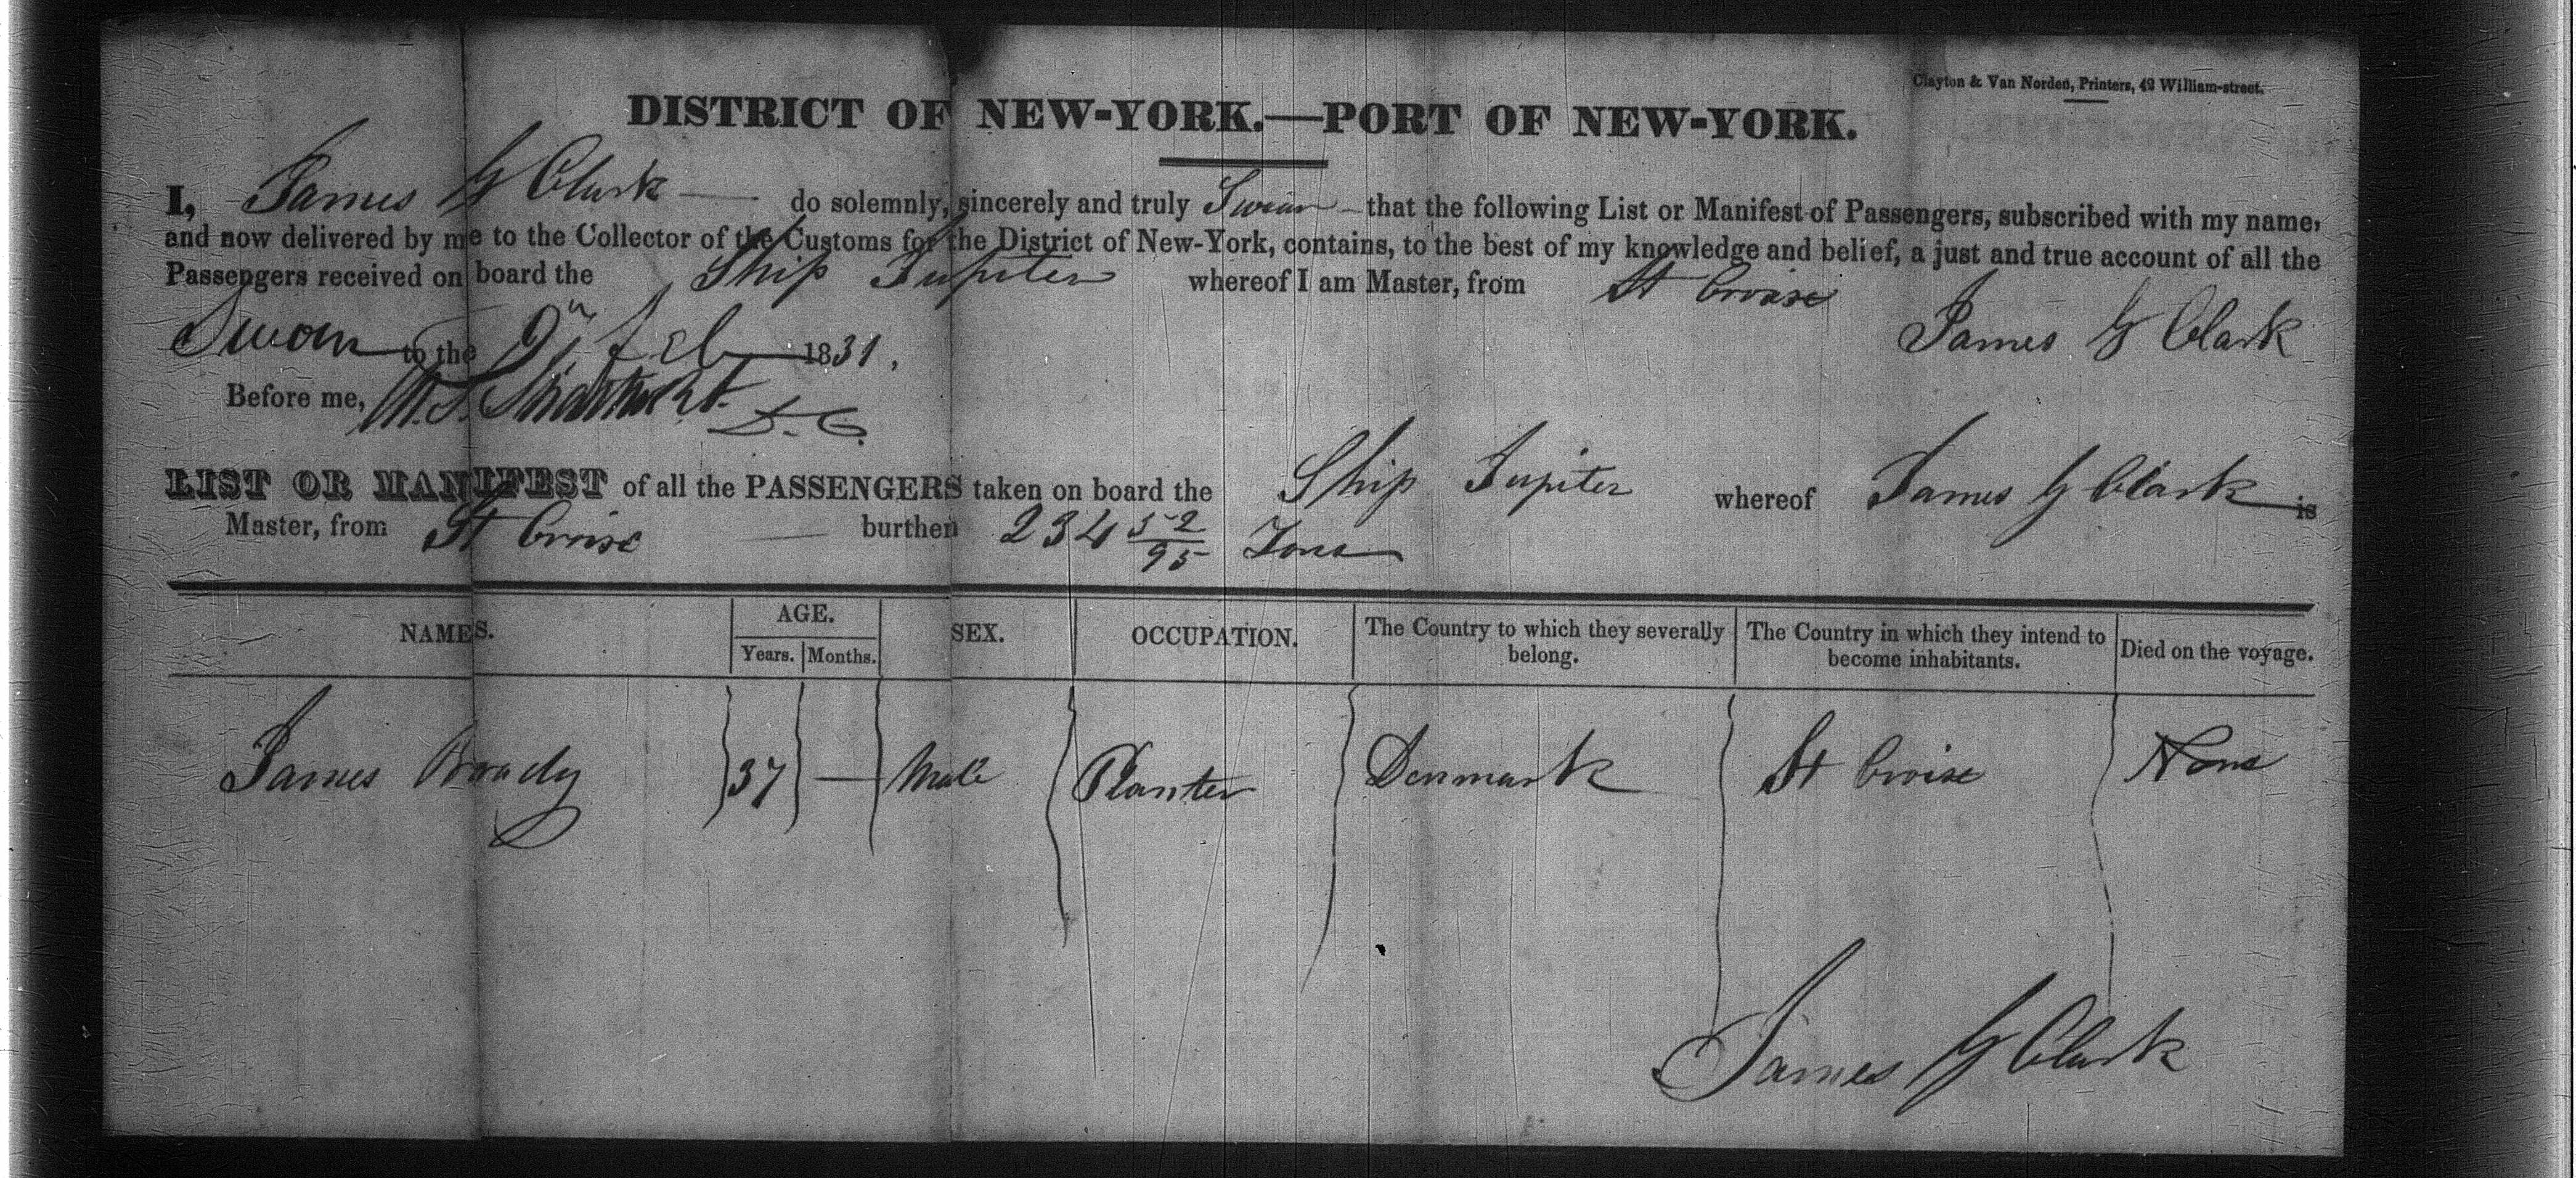 Clayton & Van Norden, Printers, 42 William-street.
DISTRICT OF NEW-YORK.—PORT OF NEW-YORK.
I, James G Clark do solemnly, sincerely and truly Swear that the following List or Manifest of Passengers, subscribed with my name,
and now delivered by me to the Collector of the Customs for the District of New-York, contains, to the best of my knowledge and belief, a just and true account of all the
Passengers received on board the Ship Jupiter whereof I am Master, from St Croise
Sworn to the 9th Feb 1831.
James G Clark
Before me, D. C.
LIST OR MANIFEST of all the PASSENGERS taken on board the Ship Jupiter whereof James G Clark is
Master, from St Croise burthen 234 52/95 Tons
NAMES. AGE. SEX. OCCUPATION. The Country to which they severally belong. The Country in which they intend to become inhabitants. Died on the voyage.
Years. Months.
James 37 — Male Planter Denmark St Croise None
James G Clark